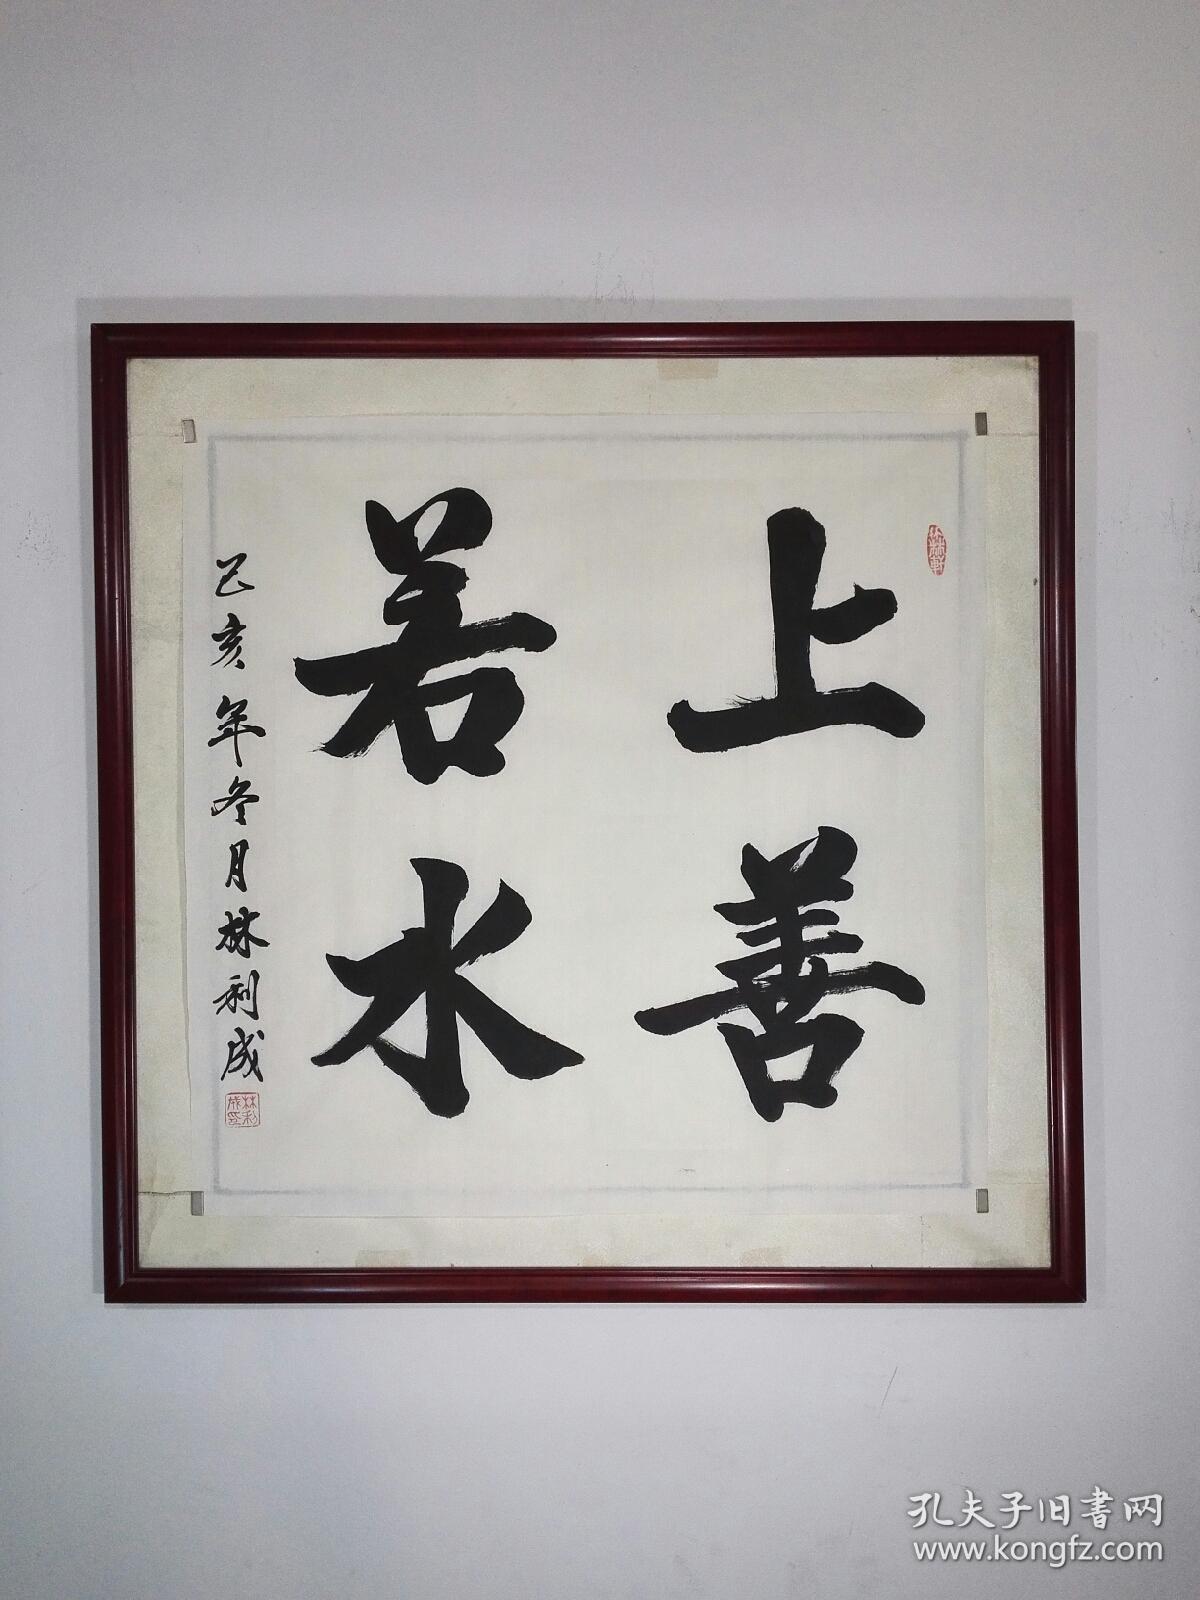 上善
若水
己亥年冬月林利成
林利成印
孔夫子旧书网
www.kongfz.com